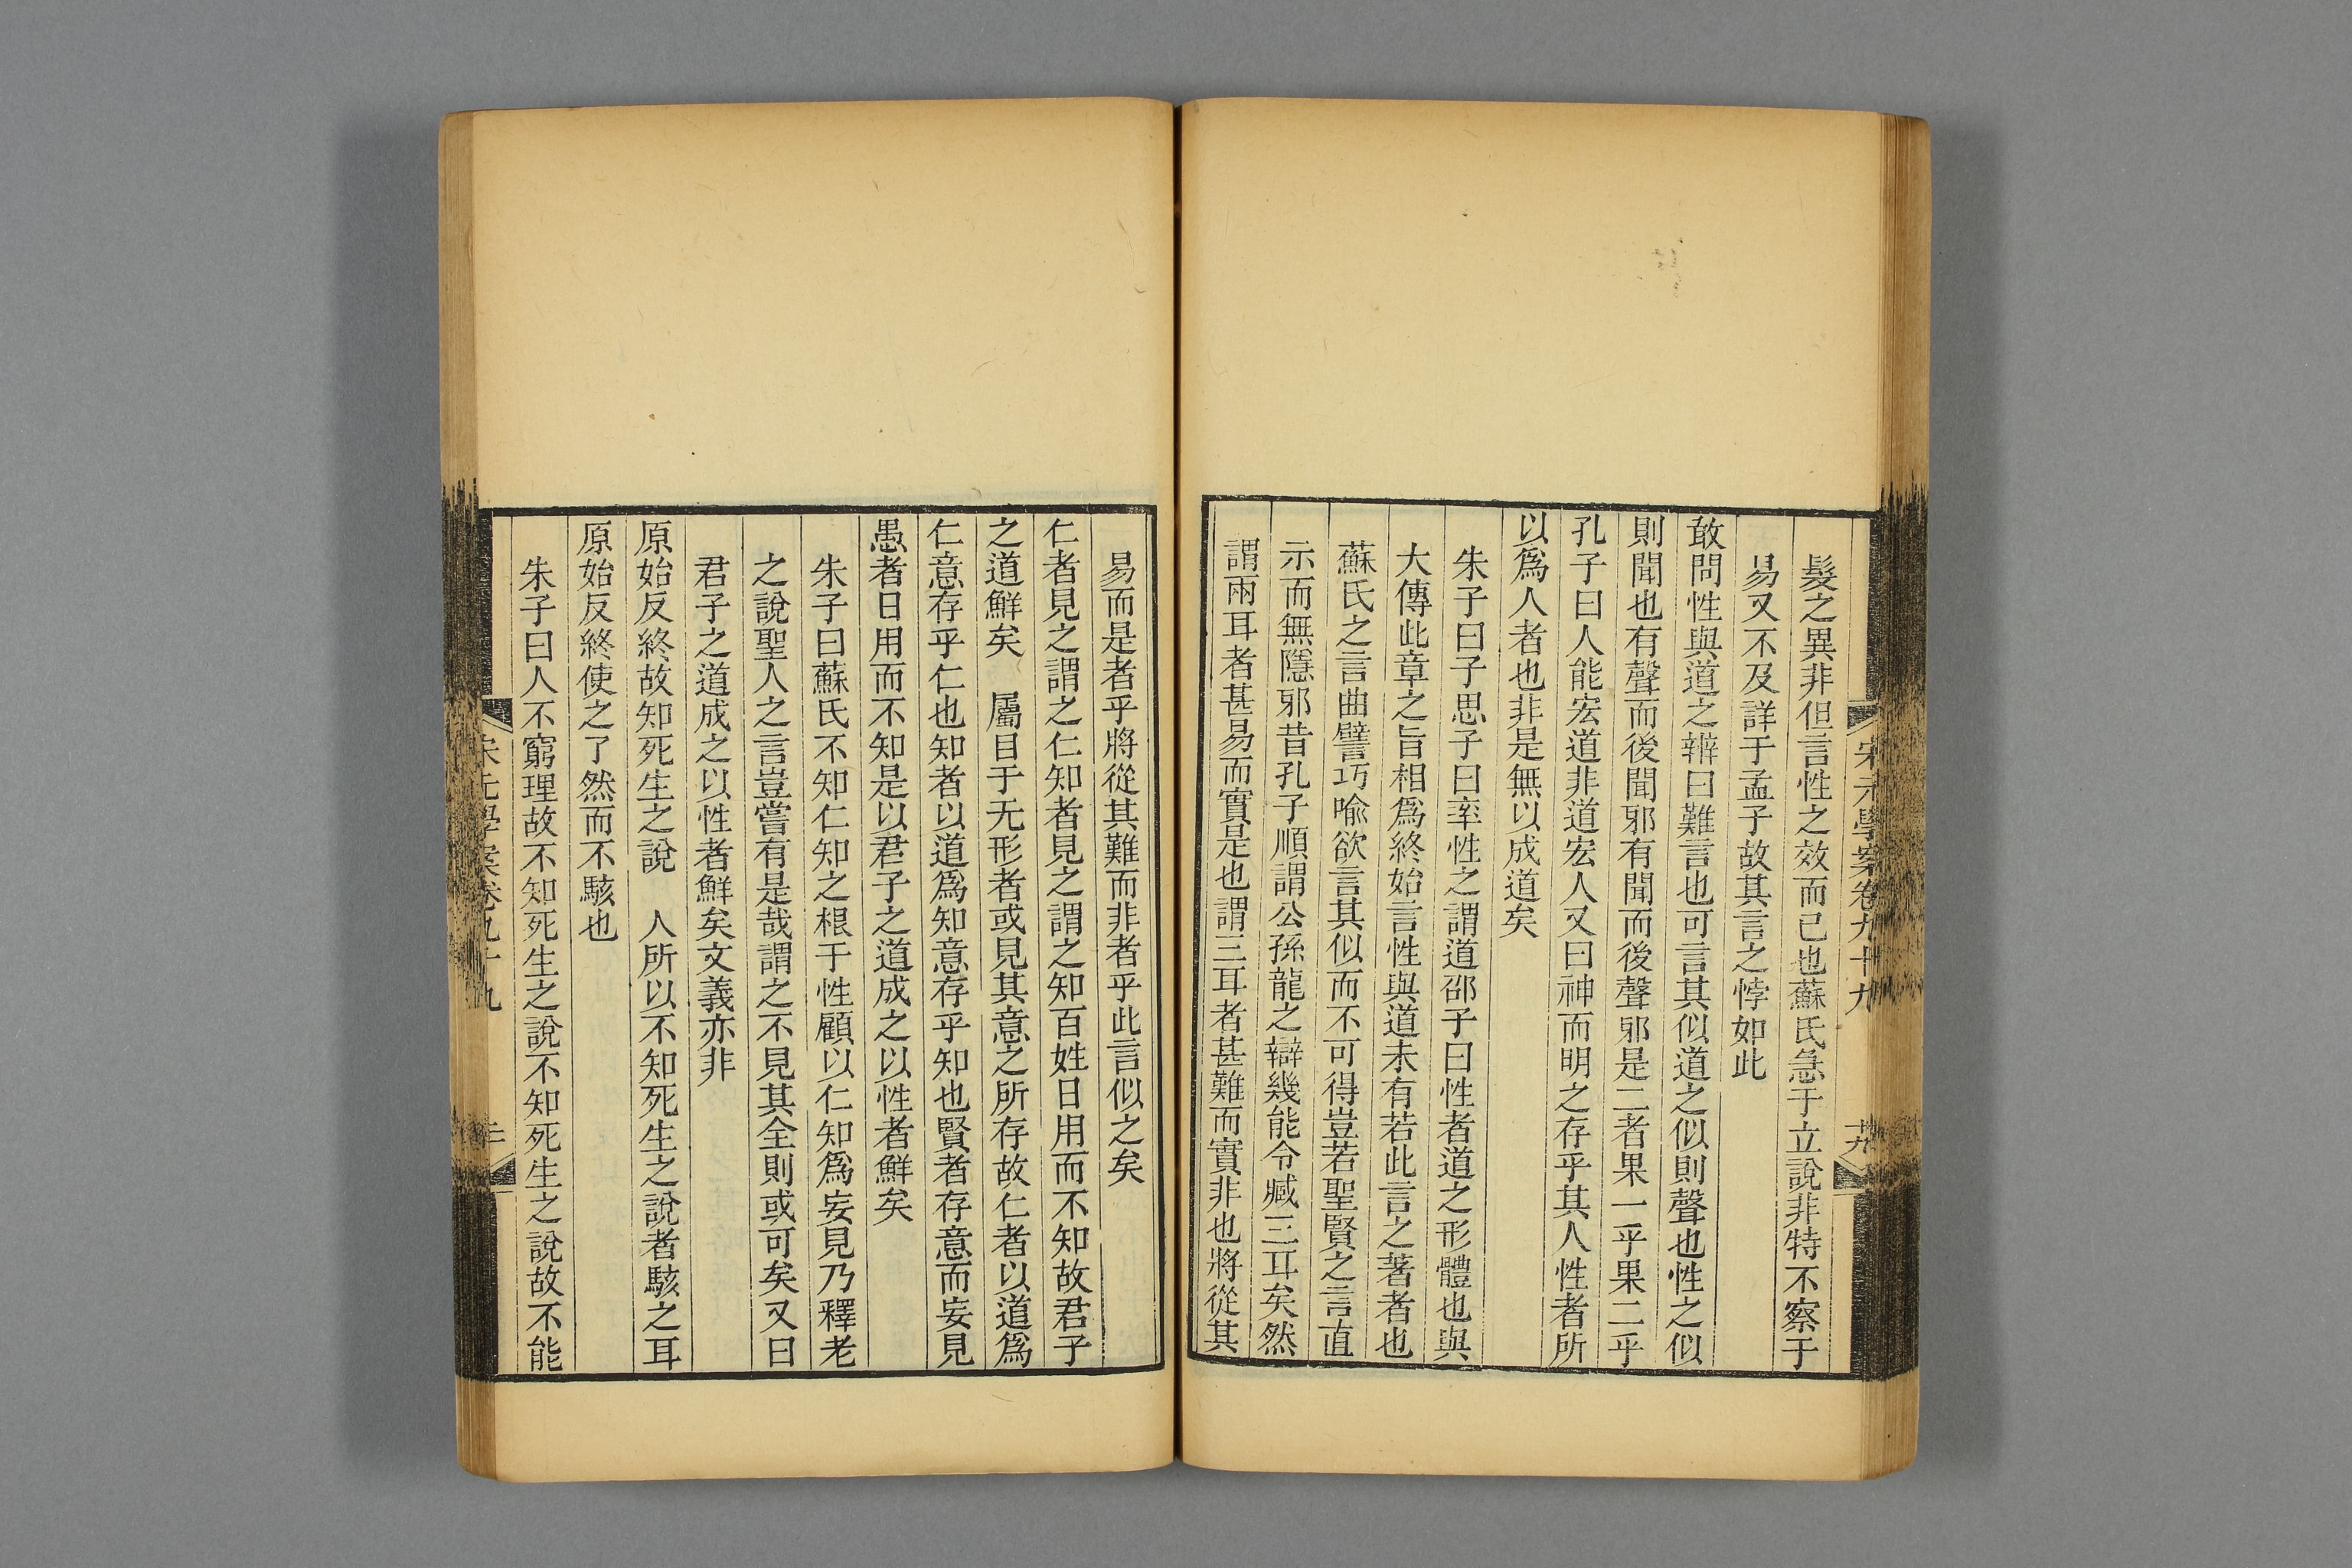 宋元學案卷九十九
髮之異非但言性之效而已也蘇氏急于立說非特不察于
易又不及詳于孟子故其言之悖如此
敢問性與道之辨曰難言也可言其似道之似則聲也性之似
則聞也有聲而後聞邪有聞而後聲邪是二者果一乎果二乎
孔子曰人能宏道非道宏人又曰神而明之存乎其人性者所
以爲人者也非是無以成道矣
朱子曰子思子曰率性之謂道邵子曰性者道之形體也與
大傳此章之旨相爲終始言性與道未有若此言之著者也
蘇氏之言曲譬巧喻欲言其似而不可得豈若聖賢之言直
示而無隱邪昔孔子順謂公孫龍之辯幾能令臧三耳矣然
謂兩耳者甚易而實是也謂三耳者甚難而實非也將從其
易而是者乎將從其難而非者乎此言似之矣
仁者見之謂之仁知者見之謂之知百姓日用而不知故君子
之道鮮矣　屬目于无形者或見其意之所存故仁者以道爲
仁意存乎仁也知者以道爲知意存乎知也賢者存意而妄見
愚者日用而不知是以君子之道成之以性者鮮矣
朱子曰蘇氏不知仁知之根于性顧以仁知爲妄見乃釋老
之說聖人之言豈嘗有是哉謂之不見其全則或可矣又曰
君子之道成之以性者鮮矣文義亦非
原始反終故知死生之說　人所以不知死生之說者駭之耳
原始反終使之了然而不駭也
朱子曰人不窮理故不知死生之說不知死生之說故不能
宋元學案卷九十九